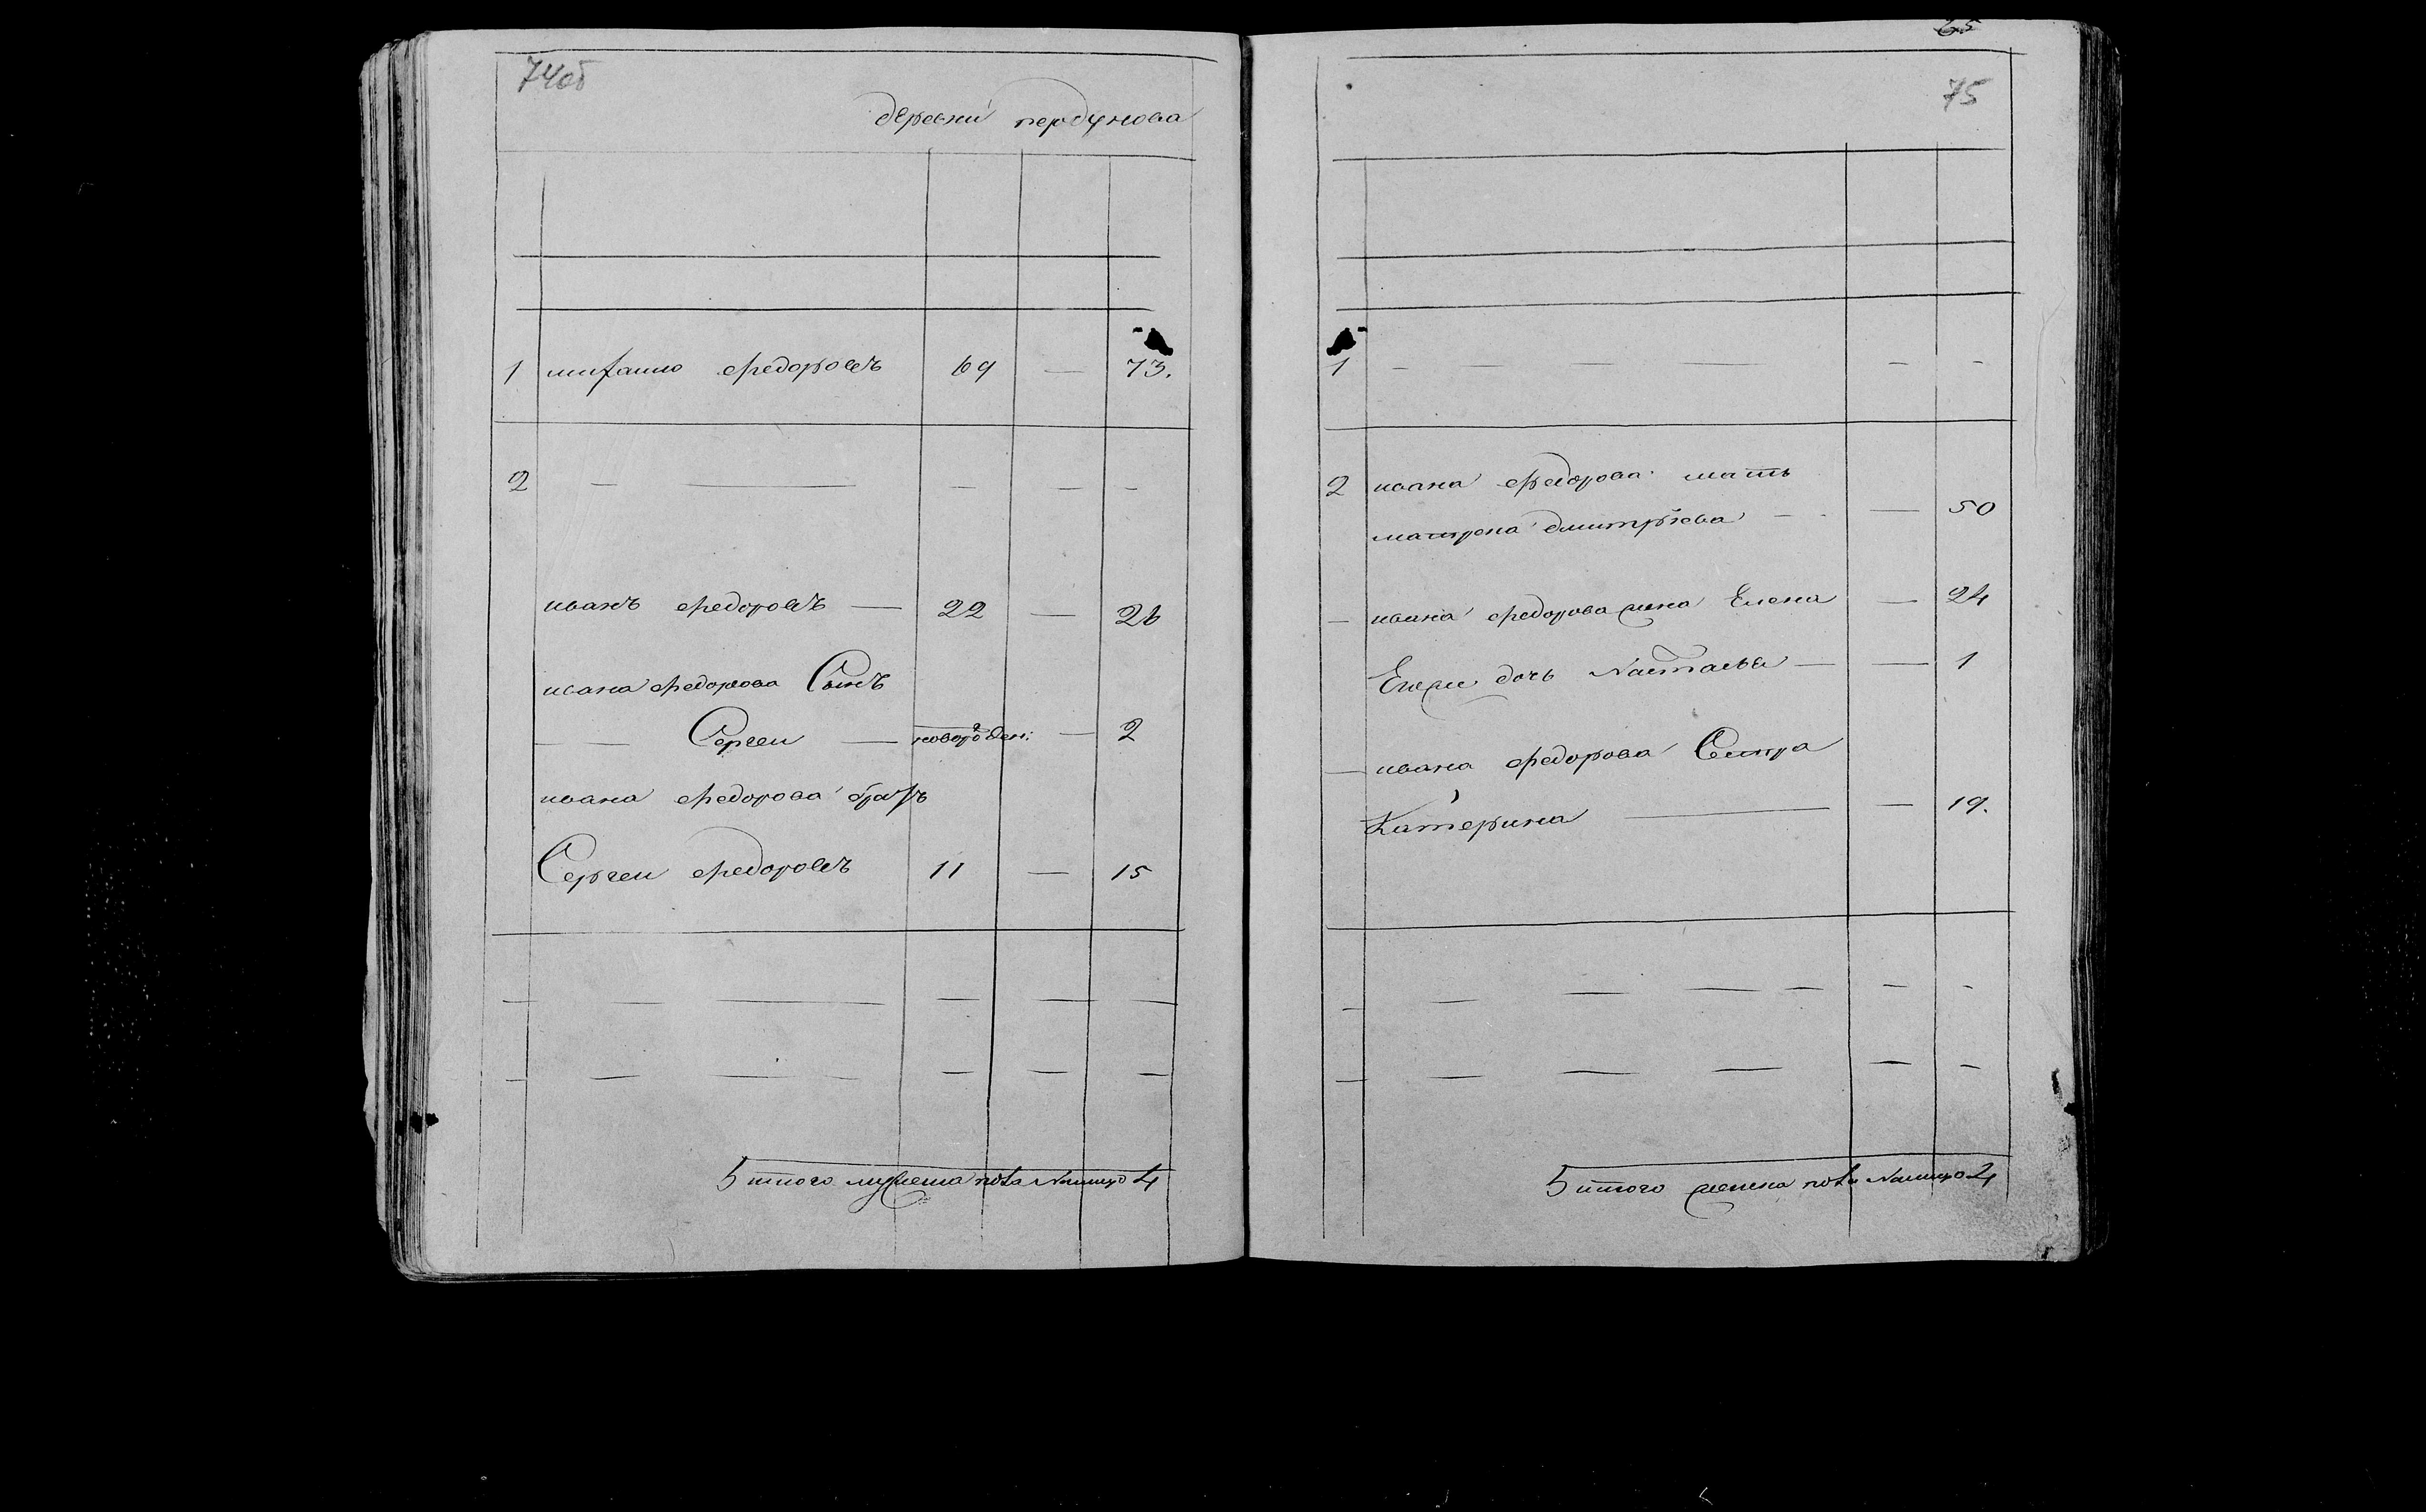 74об
деревни пердунова
1 михаило федоровъ 69 — 73.
2 — — — — —
иванъ федоровъ — 22 — 26
ивана федорова Сынъ
— Сергеи — новорожден: — 2
ивана федорова братъ
Сергеи федоровъ 11 — 15
— — — — — —
— — — — — —
итого мужеска пола Налицо 4
65
75
1 — — — — — —
2 ивана федорова мать
матрена дмитрїева — — 50
— ивана федорова жена Елена — 24
Ево же дочь Настасья — — 1
— ивана федорова Сестра
Катерина — — 19.
— — — — — — —
— — — — — —
итого женска пола Налицо 4